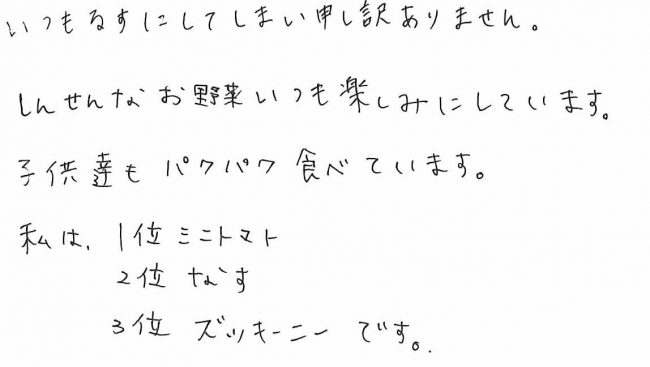 いつもるすにしてしまい申し訳ありません。
しんせんなお野菜いつも楽しみにしています。
子供達もパクパク食べています。
私は、1位 ミニトマト
2位 なす
3位 ズッキーニー です。